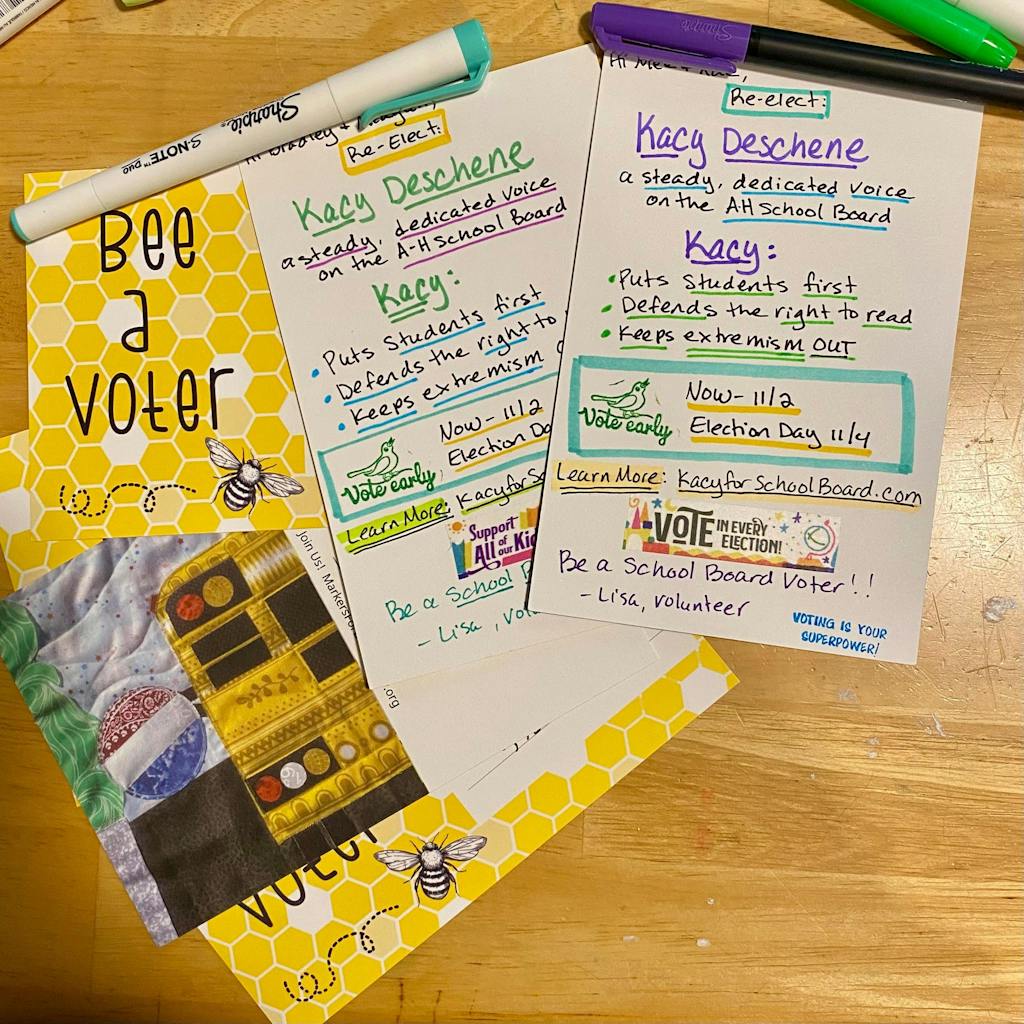 Sharpie
S·NOTE™ DUO
Sharpie
Bee
a
voter
Hi Bradley &
Re-Elect:
Kacy Deschene
a steady, dedicated voice
on the A-H School Board
Kacy:
• Puts Students first
• Defends the right to
• Keeps extremism
Vote early
Now - 11/2
Election Da
Learn More: KacyforSc
Support
All of our Kid
Be a School B
- Lisa, volu
Hi
Re-elect:
Kacy Deschene
a steady, dedicated voice
on the A-H School Board
Kacy:
• Puts Students first
• Defends the right to read
• Keeps extremism OUT
Vote early
Now - 11/2
Election Day 11/4
Learn More: KacyforSchoolBoard.com
VOTE IN EVERY
ELECTION!
Be a School Board Voter!!
- Lisa, volunteer
VOTING IS YOUR
SUPERPOWER!
Join Us! MarkersFo
.org
voter